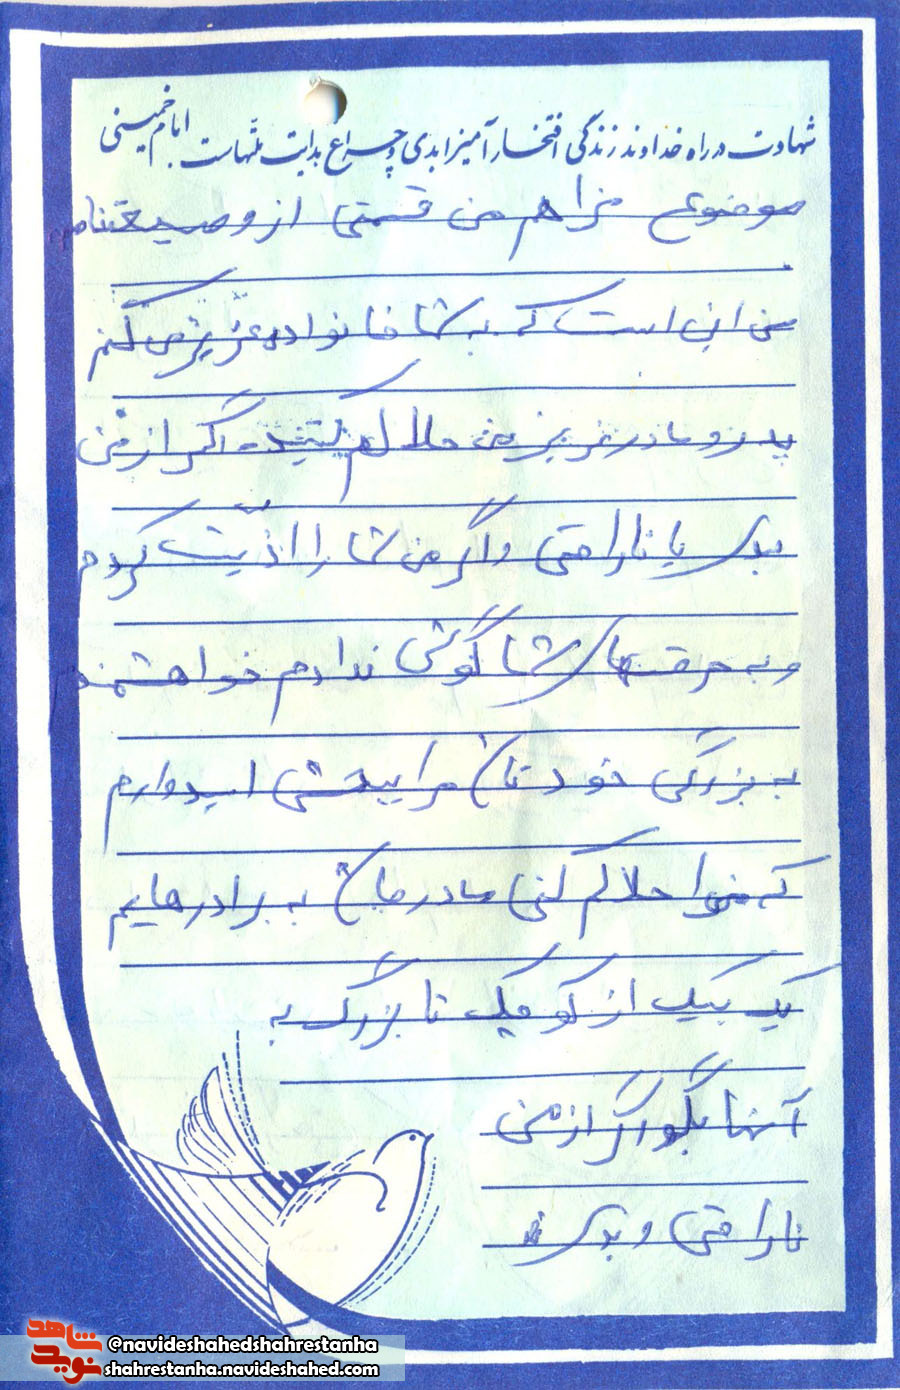 شهادت در راه خداوند زندگی افتخار آمیز ابدی و چراغ هدایت ملتهاست. امام خمینی
موضوع مزاهم من قسمتی از وصیعتنامه
من این است که به شما خانواده عزیز می کنم
پدر و مادر عزیز من حلالم کنید اگر از من
بدی یا ناراحتی و اگر من شما را اذیت کردم
و به حرفهای شما گوش ندادم خواهشمندم
به بزرگی خودتان مرا ببخشی امیدوارم
که حلالم کنی مادر جان به برادرهایم
یک بیک از کوچک تا بزرگ به
آنها بگو اگر از من
ناراحتی و بدی
شاهد
نوید
@navideshahedshahrestanha
shahrestanha.navideshahed.com